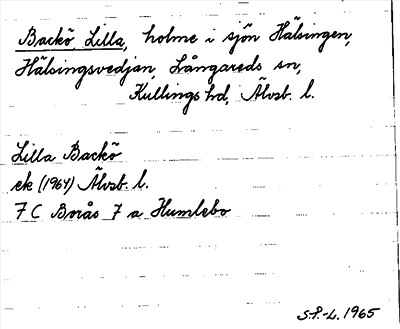 Backö, Lilla, holme i sjön Hälsingen,
Hälsingsvedjan, Långareds sn,
Kullings hd, Älvsb. l.
Lilla Backö
ek (1964) Älvsb. l.
7 C Borås 7 a Humlebo
S.P.-L. 1965